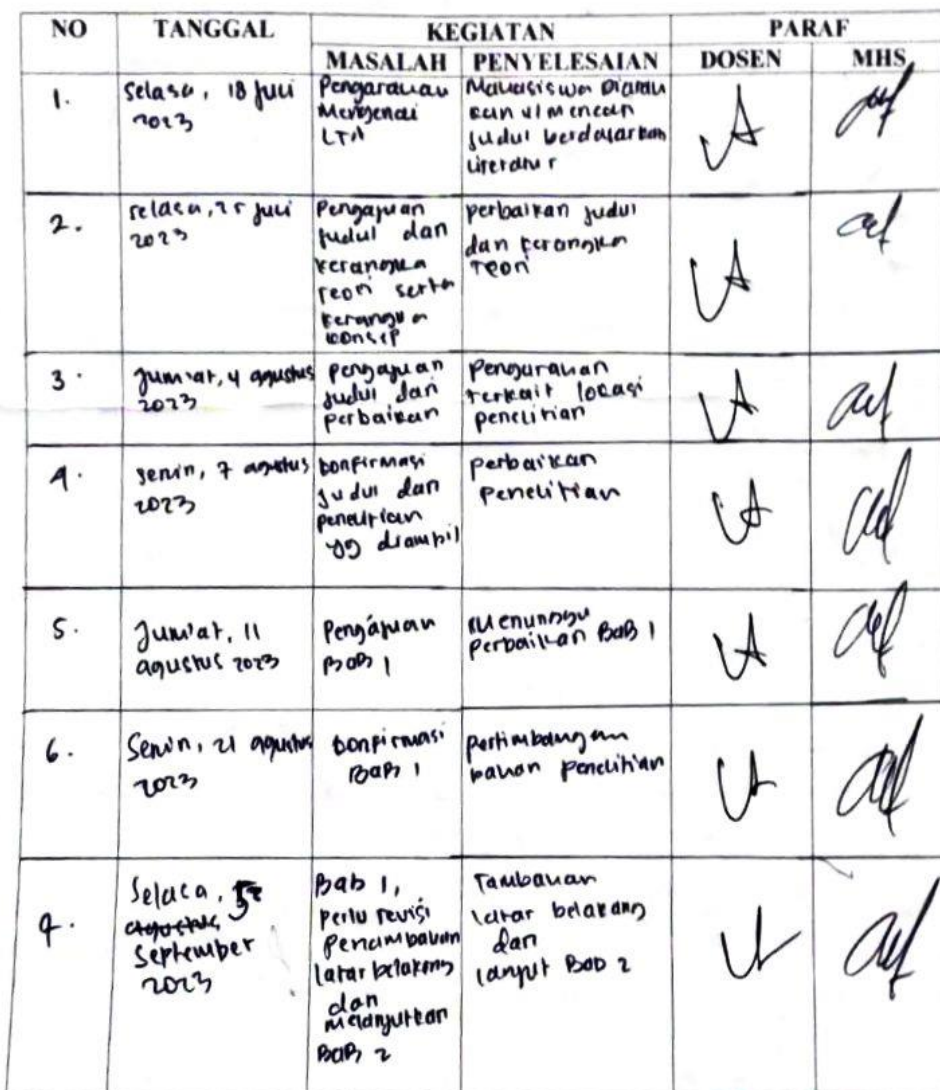 NO TANGGAL KEGIATAN PARAF
MASALAH PENYELESAIAN DOSEN MHS
1.
Selasa, 18 Juli
2023
Pengarahan
Mengenai
LTA
Mahasiswa Diarah
kan u/ mencari
judul berdasarkan
literatur
2.
Selasa, 25 Juli
2023
Pengajuan
judul dan
kerangka
teori serta
kerangka
konsep
perbaikan judul
dan kerangka
teori
3.
Jum'at, 4 agustus
2023
pengajuan
judul dan
perbaikan
Pengarahan
terkait locasi
penelitian
4.
Senin, 7 agustus
2023
konfirmasi
judul dan
penelitian
yg diambil
perbaikan
penelitian
5.
Jum'at, 11
agustus 2023
Pengajuan
BAB 1
Menunggu
perbaikan BAB 1
6.
Senin, 21 agustus
2023
konfirmasi
BAB 1
pertimbangan
bahan penelitian
7.
Selasa, 5
agustus
September
2023
Bab 1,
perlu revisi
penambahan
latar belakang
dan
melanjutkan
BAB 2
Tambahan
latar belakang
dan
lanjut BAB 2